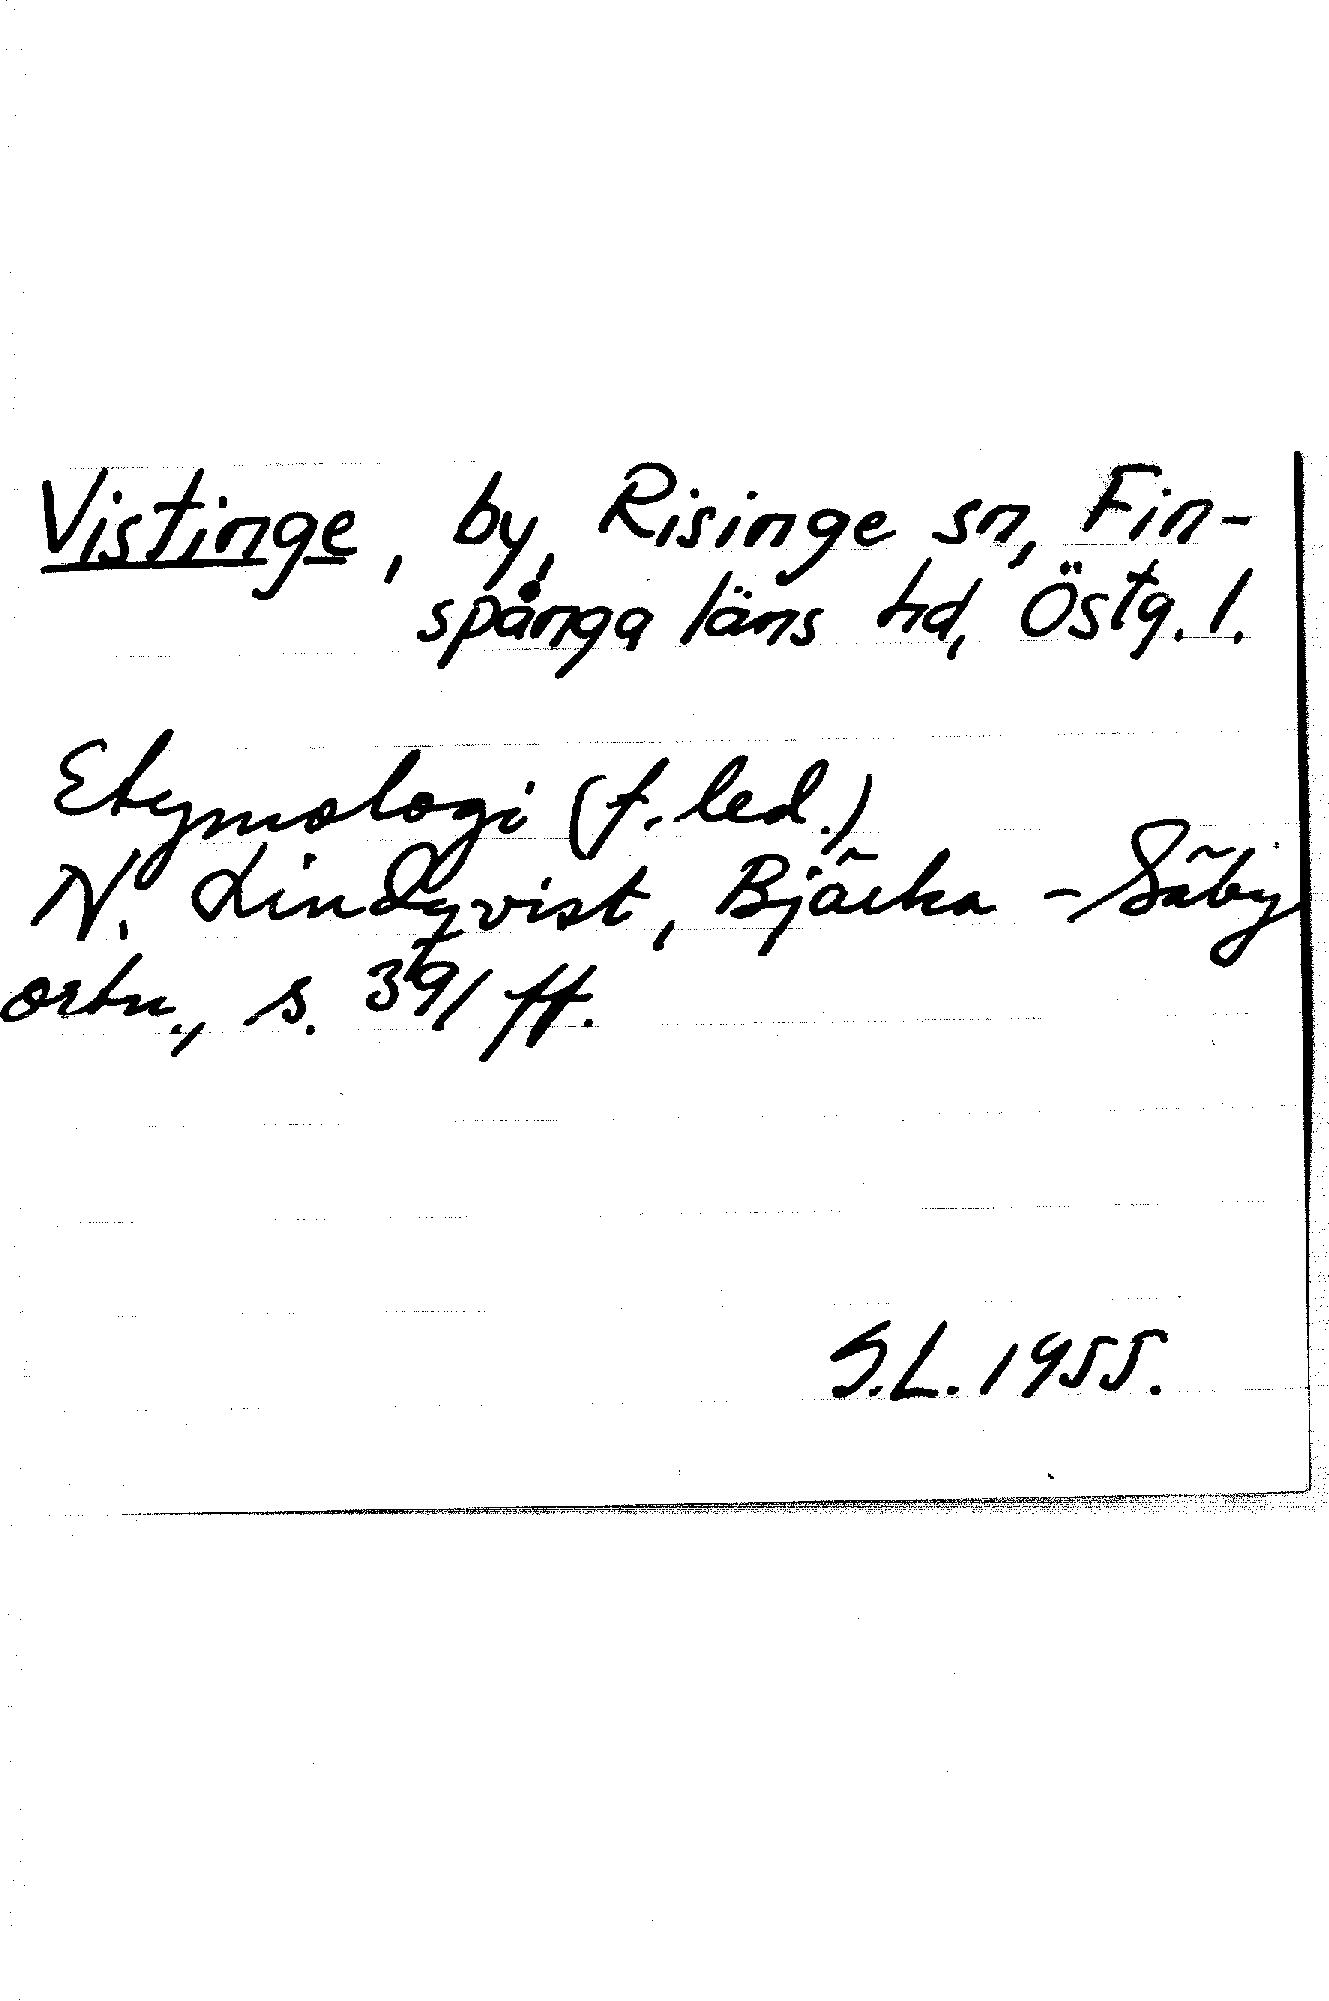 Vistinge, by, Risinge sn, Fin-
spånga läns hd, Östg. l.
Etymologi (f. led.)
N. Lindqvist, Bjärka-Säby
ortn., s. 391 ff.
S.L. 1955.